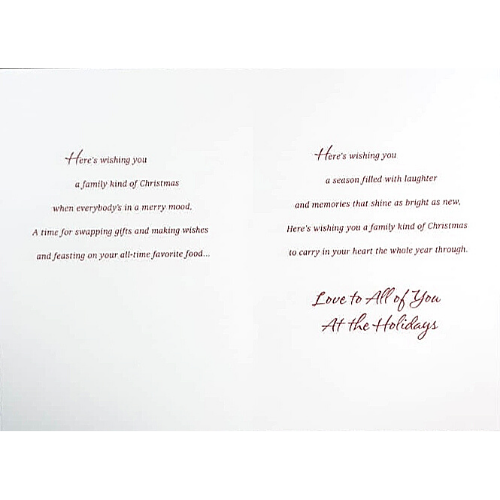 Here's wishing you
a family kind of Christmas
when everybody's in a merry mood,
A time for swapping gifts and making wishes
and feasting on your all-time favorite food...
Here's wishing you
a season filled with laughter
and memories that shine as bright as new,
Here's wishing you a family kind of Christmas
to carry in your heart the whole year through.
Love to All of You
At the Holidays